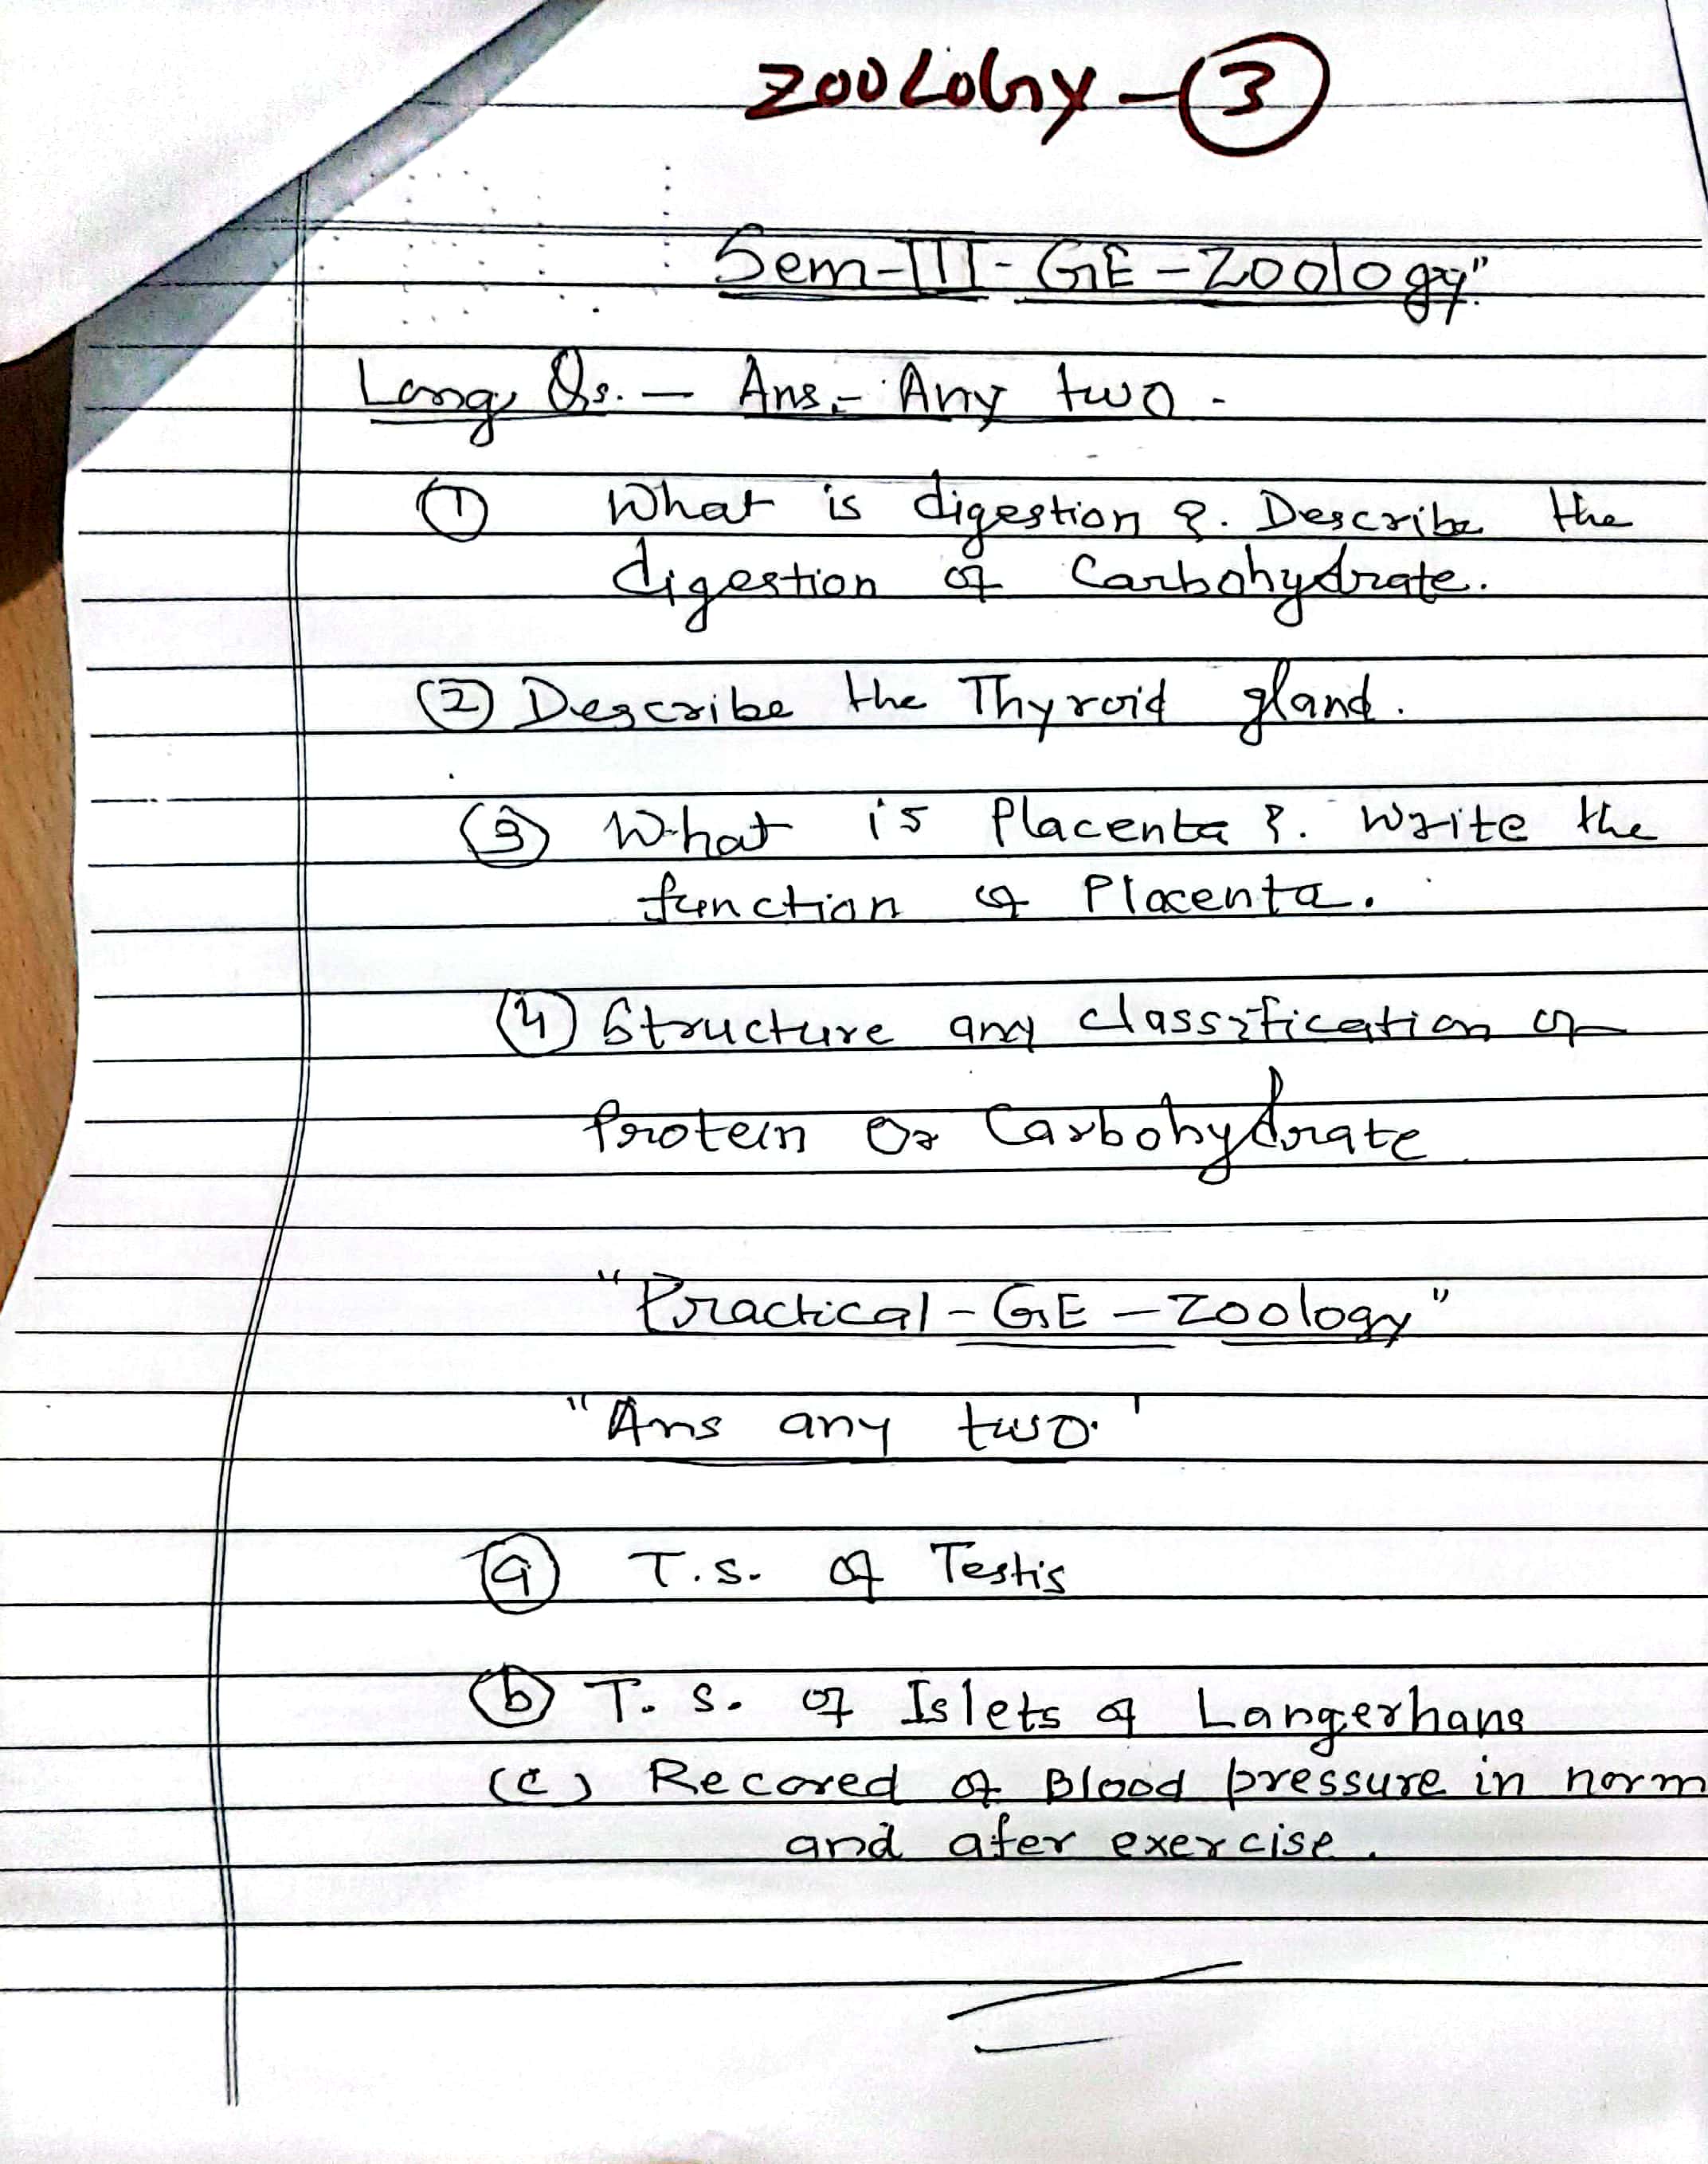 ZOOLOGY - 3
Sem-III- GE - Zoology"
Long Qs. - Ans:- Any two -
1 What is digestion ?. Describe the
digestion of Carbohydrate.
(2) Describe the Thyroid gland.
(3) What is Placenta ?. Write the
function of Placenta.
(4) Structure any classification of
Protein Or Carbohydrate
"Practical - GE - Zoology"
"Ans any two.'
a T.s. of Testis
b T. s. of Islets of Langerhans
(c) Recored of Blood pressure in norm
and ater exercise.